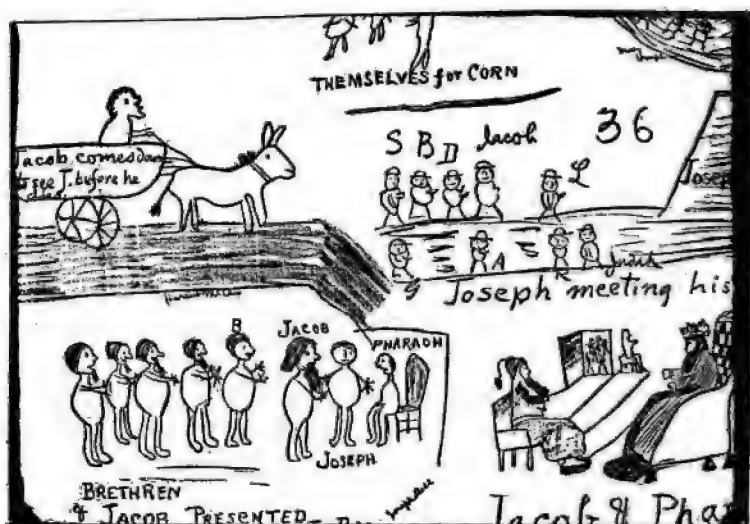 THEMSELVES for CORN
36
S B D Jacob
L
Jacob comes down
to see J. before he
Joseph
G A R Judah
Joseph meeting his
B
JACOB
PHARAOH
JOSEPH
BRETHREN
of JACOB PRESENTED
Jacob & Pha